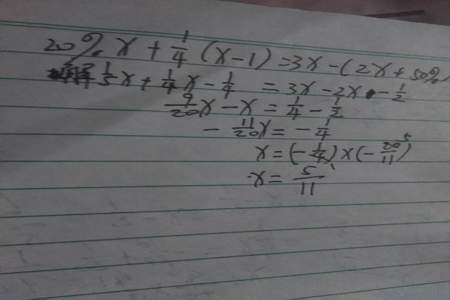 20% x + 1/4 (x-1) = 3x - (2x + 50%
1/5 x + 1/4 x - 1/4 = 3x - 2x - 1/2
9/20 x - x = 1/4 - 1/2
- 11/20 x = - 1/4
x = (- 1/4) × (- 20/11) 5
x = 5/11